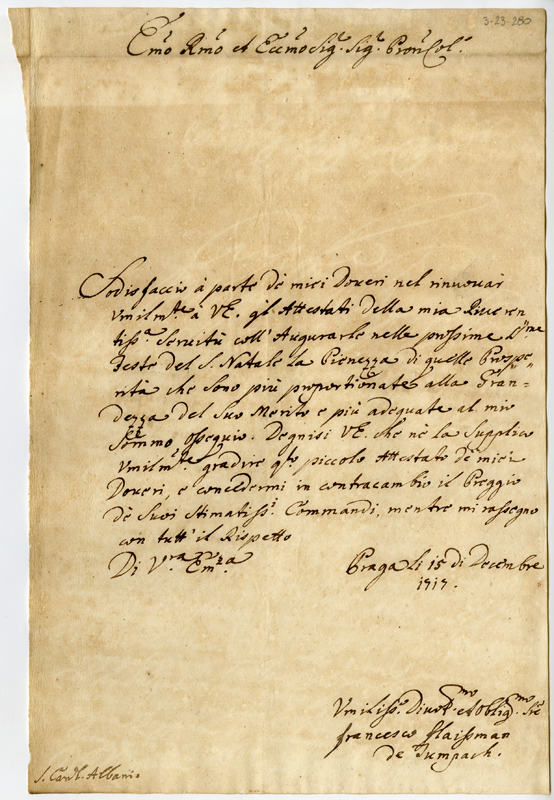 3-23-280
Em̃o Rm̃o et Eccm̃o Sig.r Sig.r Pron Col.mo
Sodisfaccio à parte dè miei Doveri nel rinuovar
Vmilmte à VE. gl' Attestati della mia Riveren
tiss.a Servitù coll' Augurarle nelle prossime S.me
Feste del S. Natale la Pienezza di quelle Prospe
rità che sono più proportionate alla Gran=
dezza del Suo Merito e più adequate al mio
Sommo Ossequio. Degnisi VE. che nè la Supplico
Vmilmte gradire q.to piccolo Attestato dè miei
Doveri, e concedermi in contracambio il Preggio
dè Suoi Stimatiss.i Commandi, mentre mi rassegno
con tutt' il Rispetto
Di V.ra Em.za
Praga Li 15 di Decembre
1717.
Vmiliss.o Divot.mo et Oblig.mo Sre
Francesco Slaissman
de Tumpach.
S. Card.l Albani